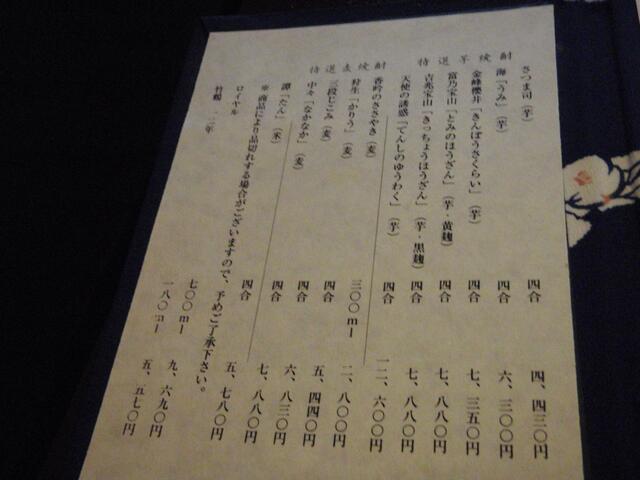 特選芋焼酎
さつま司（芋） 四合 四、四三〇円
海「うみ」（芋） 四合 六、三〇〇円
金峰櫻井「きんぽうさくらい」（芋） 四合 七、三五〇円
富乃宝山「とみのほうざん」（芋・黄麹） 四合 七、八八〇円
吉兆宝山「きっちょうほうざん」（芋・黒麹） 四合 七、八八〇円
天使の誘惑「てんしのゆうわく」（芋） 四合 一二、六〇〇円
特選麦焼酎
香吟のささやき（麦） 三〇〇ml 二、八〇〇円
狩生「かりう」（麦） 四合 五、四四〇円
三段じこみ（麦） 四合 六、八三〇円
中々「なかなか」（麦） 四合 七、八八〇円
譚「たん」（米） 四合 五、七八〇円
※商品により品切れする場合がございますので、予めご了承下さい。
ロイヤル 七〇〇ml 九、六九〇円
竹鶴 一二年 一八〇ml 五、五七〇円